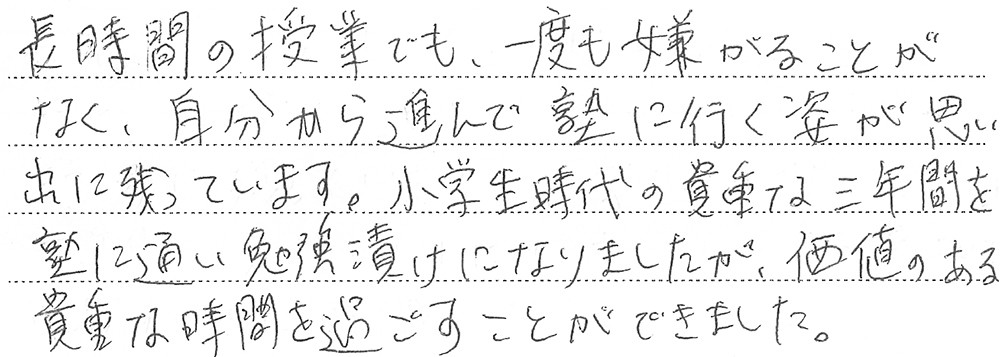 長時間の授業でも、一度も嫌がることが
なく、自分から進んで塾に行く姿が思い
出に残っています。小学生時代の貴重な三年間を
塾に通い勉強漬けになりましたが、価値のある
貴重な時間を過ごすことができました。